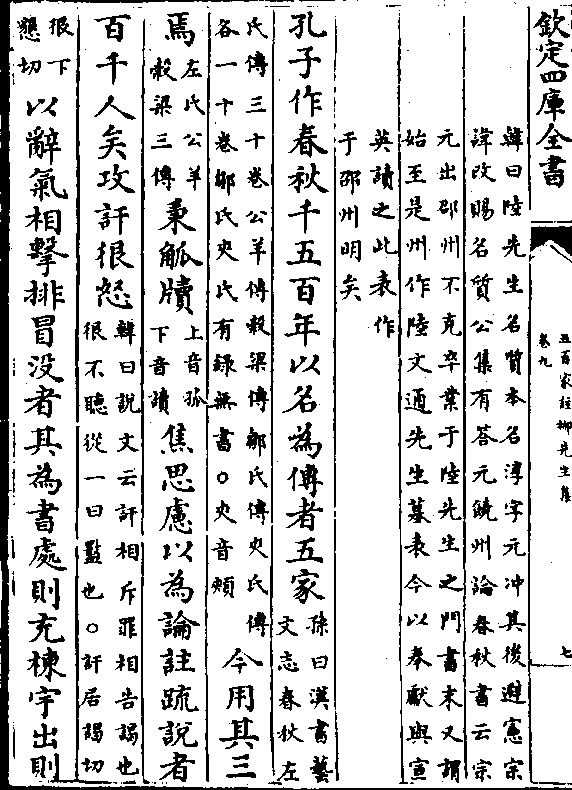 欽定四庫全書
五百家註柳先生集
卷九
七
韓曰陸先生名質本名淳字元冲其後避憲宗
諱改賜名質公集有答元饒州論春秋書云宗
元出邵州不克卒業于陸先生之門書末又謂
始至是州作陸文通先生墓表今以奉獻與宣
英讀之此表作
于邵州明矣
孔子作春秋千五百年以名為傳者五家孫曰漢書藝文志春秋左
氏傳三十卷公羊傳穀梁傳鄒氏傳夾氏傳各一十卷鄒氏夾氏有録無書○夾音頰今用其三
焉左氏公羊穀梁三傳秉觚牘上音孤下音讀焦思慮以為論註疏說者
百千人矣攻訐很怒韓曰說文云訐相斥罪相告謁也很不聽從一曰盭也○訐居謁切
很下懇切以辭氣相擊排冒没者其為書處則充棟宇出則